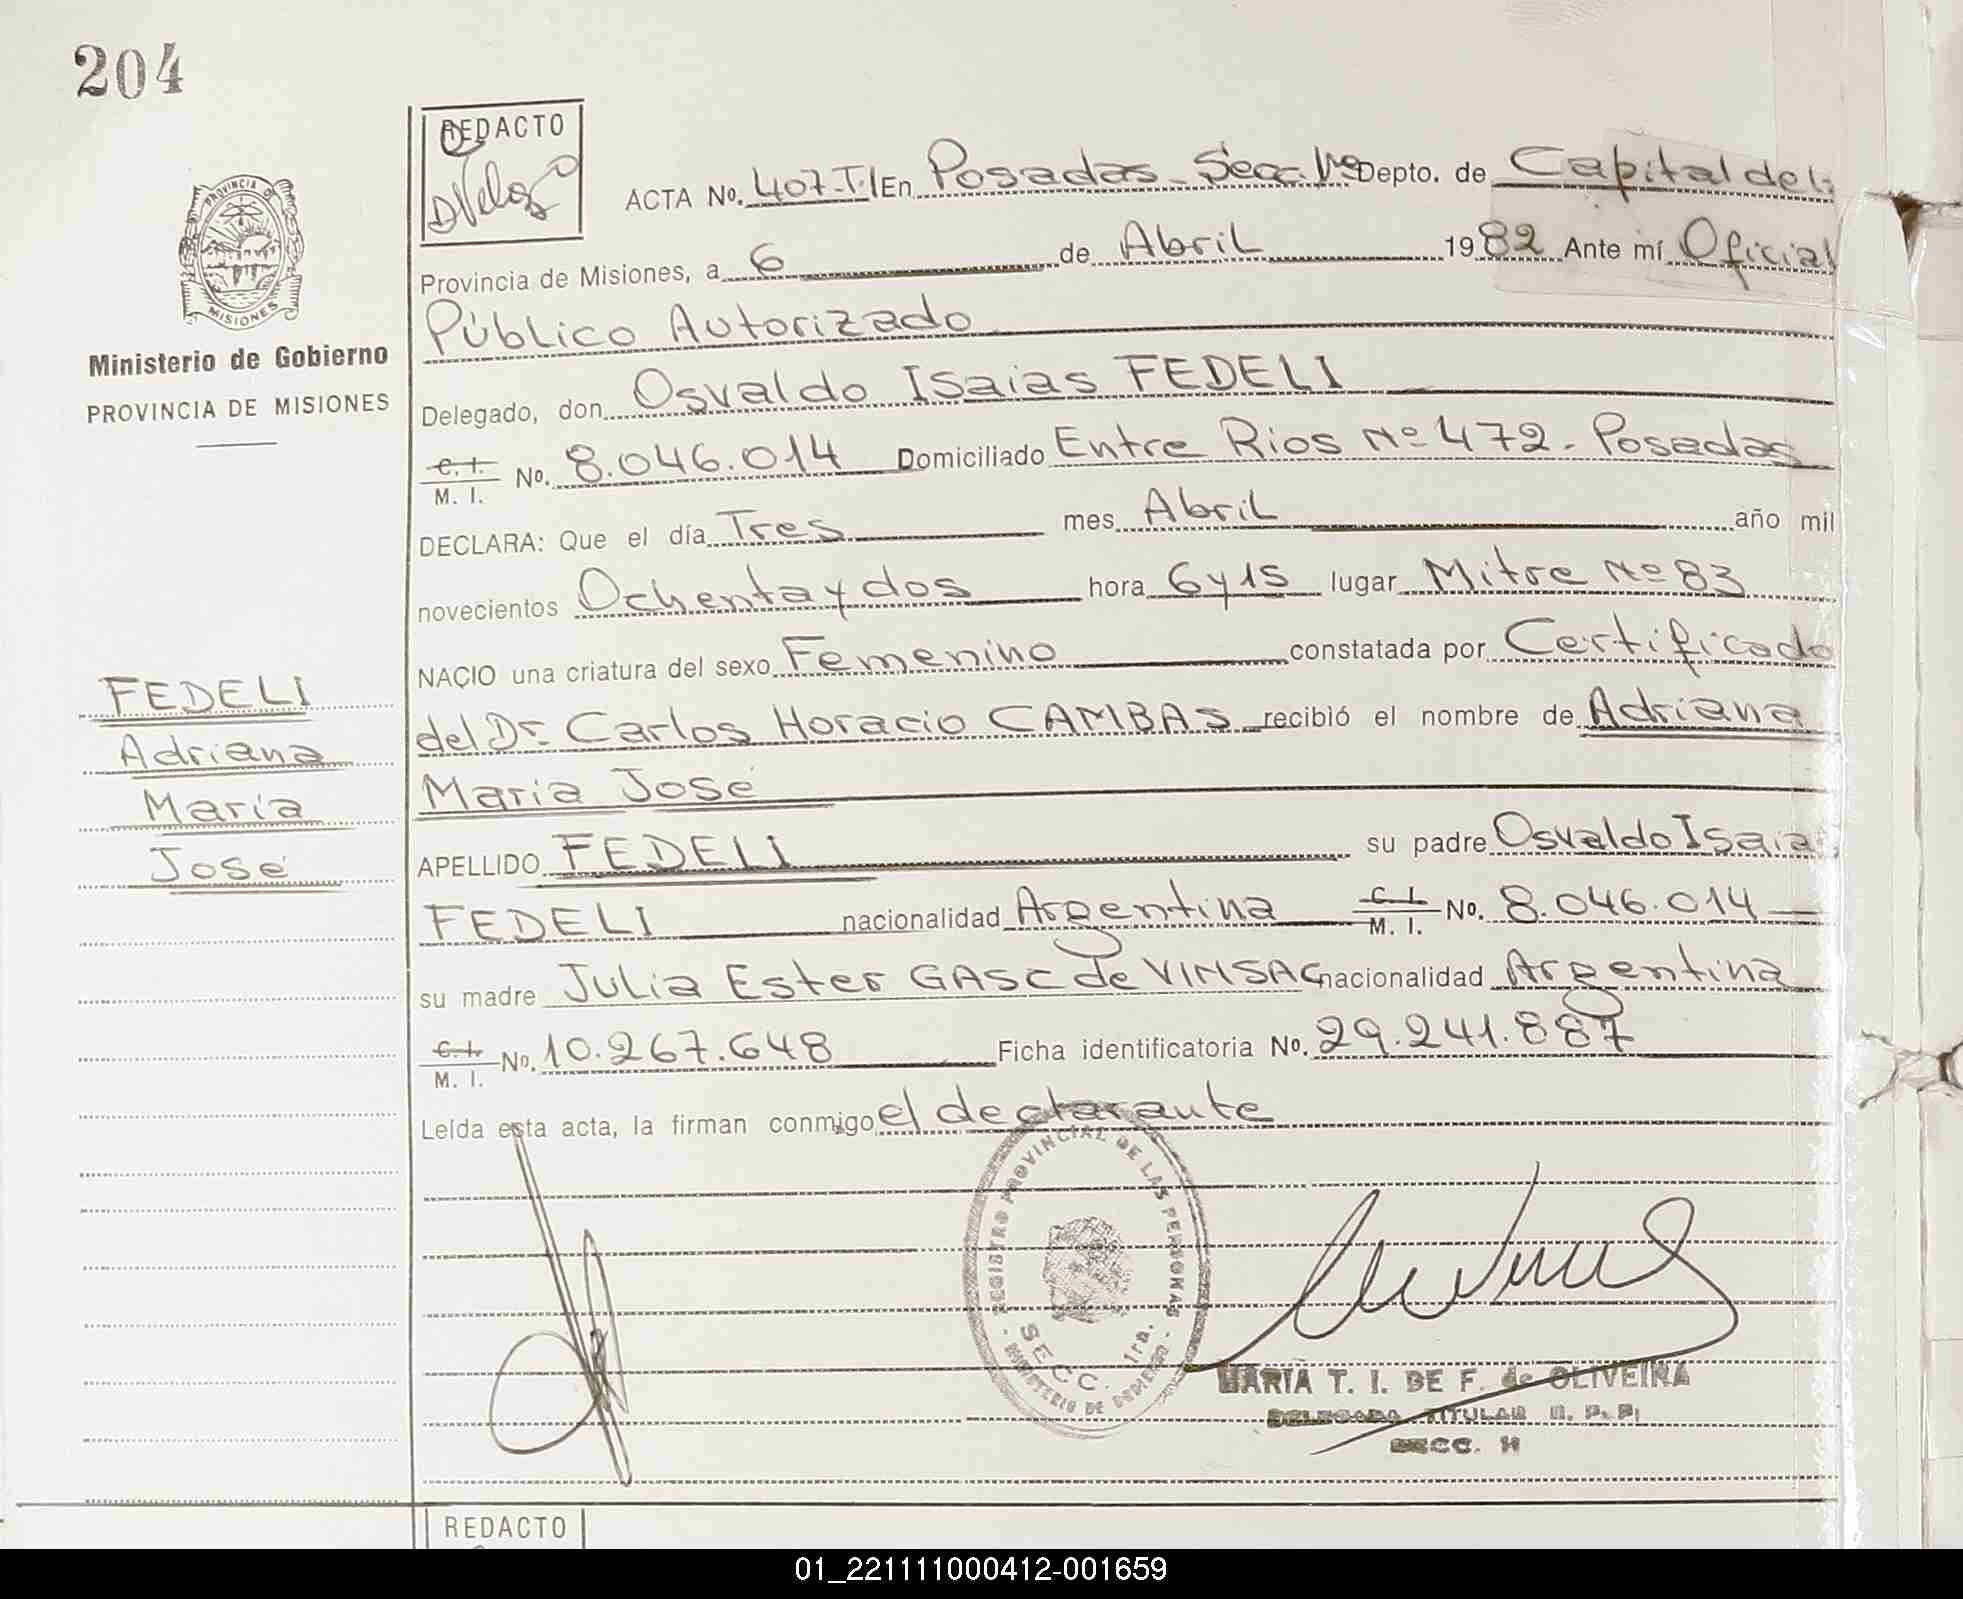 204
REDACTO
DVelozo
ACTA No. 407-T.I En Posadas - Secc. 1ra Depto. de Capital de la
Provincia de Misiones, a 6 de Abril 1982 Ante mí Oficial
Público Autorizado
PROVINCIA DE MISIONES
Ministerio de Gobierno
PROVINCIA DE MISIONES
Delegado, don Osvaldo Isaias FEDELI
C. I. M. I. No. 8.046.014 Domiciliado Entre Rios Nº 472 - Posadas
DECLARA: Que el día Tres mes Abril año mil
novecientos Ochenta y dos hora 6 y 15 lugar Mitre Nº 83
NACIO una criatura del sexo Femenino constatada por Certificado
del Dr. Carlos Horacio CAMBAS recibió el nombre de Adriana
María José
FEDELI
Adriana
María
José
APELLIDO FEDELI su padre Osvaldo Isaia
FEDELI nacionalidad Argentina C. I. M. I. No. 8.046.014
su madre Julia Ester GASC de VINSAC nacionalidad Argentina
C. I. M. I. No. 10.267.648 Ficha identificatoria No. 29.241.887
Leída esta acta, la firman conmigo el declarante
REGISTRO PROVINCIAL DE LAS PERSONAS - MINISTERIO DE GOBIERNO -
SECC. 1ra.
MARIA T. I. DE F. de OLIVEIRA
DELEGADA TITULAR R. P. P.
SECC. 1ª
REDACTO
01_221111000412-001659